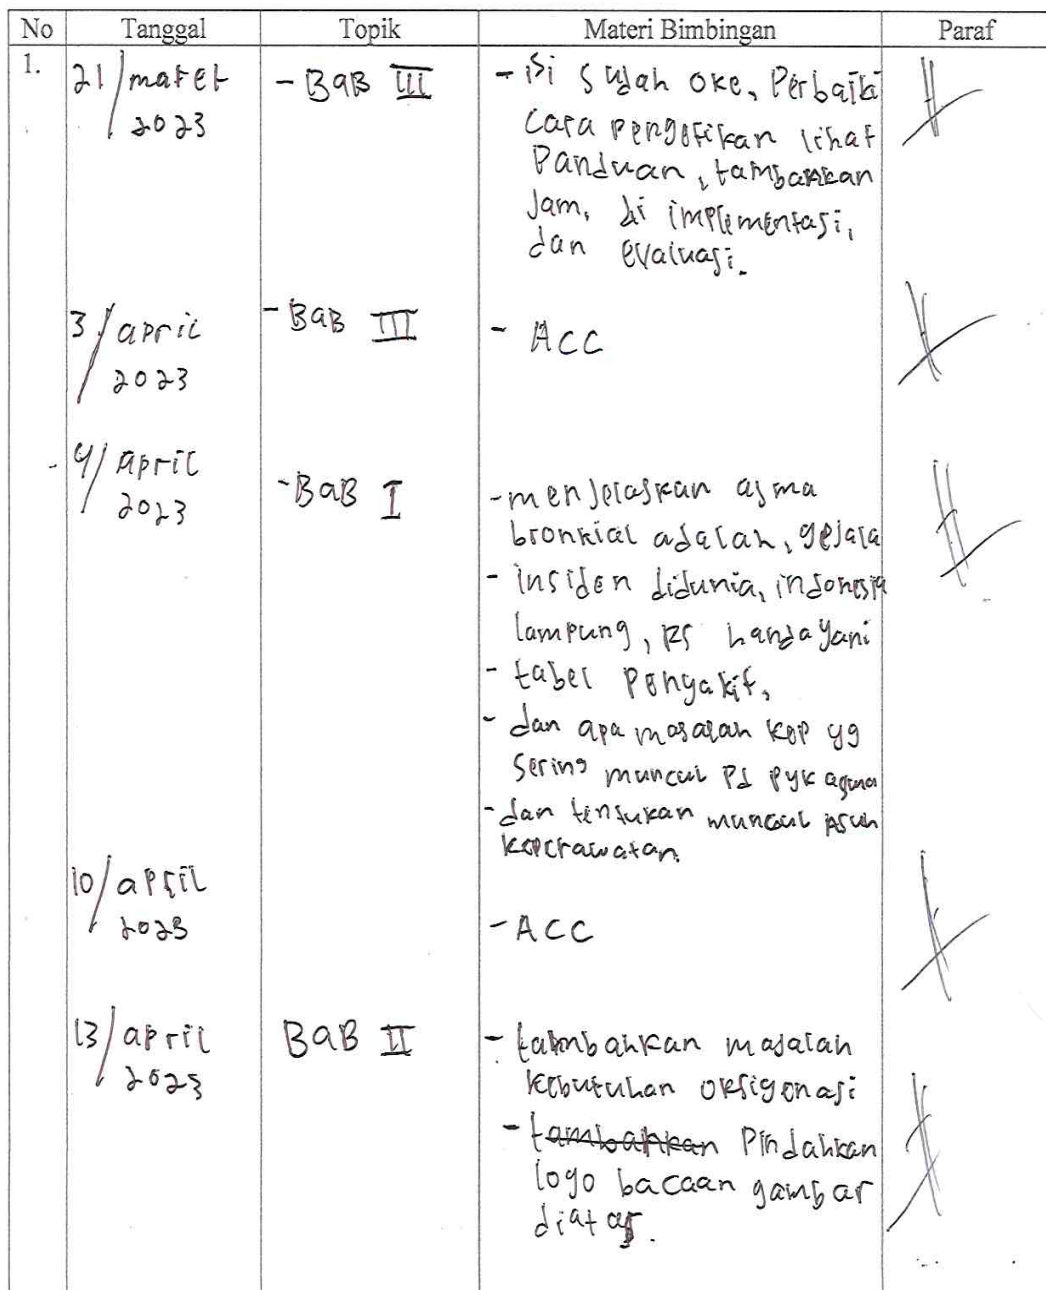 No Tanggal Topik Materi Bimbingan Paraf
1. 21/maret - BAB III - isi sudah oke, Perbaiki
2023 cara pengetikan lihat
Panduan, tambahkan
Jam, di implementasi,
dan evaluasi.
3/april - BAB III - ACC
2023
4/April - BAB I - menjelaskan asma
2023 bronkial adalah, gejala
- insiden didunia, indonesia
lampung, RS handayani
- tabel Penyakit,
- dan apa masalah kep yg
sering muncul Pd Pyk asma
- dan tentukan muncul asuh
keperawatan.
10/april - ACC
2023
13/april BAB II - tambahkan masalah
2023 kebutuhan oksigenasi
- tambahkan Pindahkan
logo bacaan gambar
diatas.